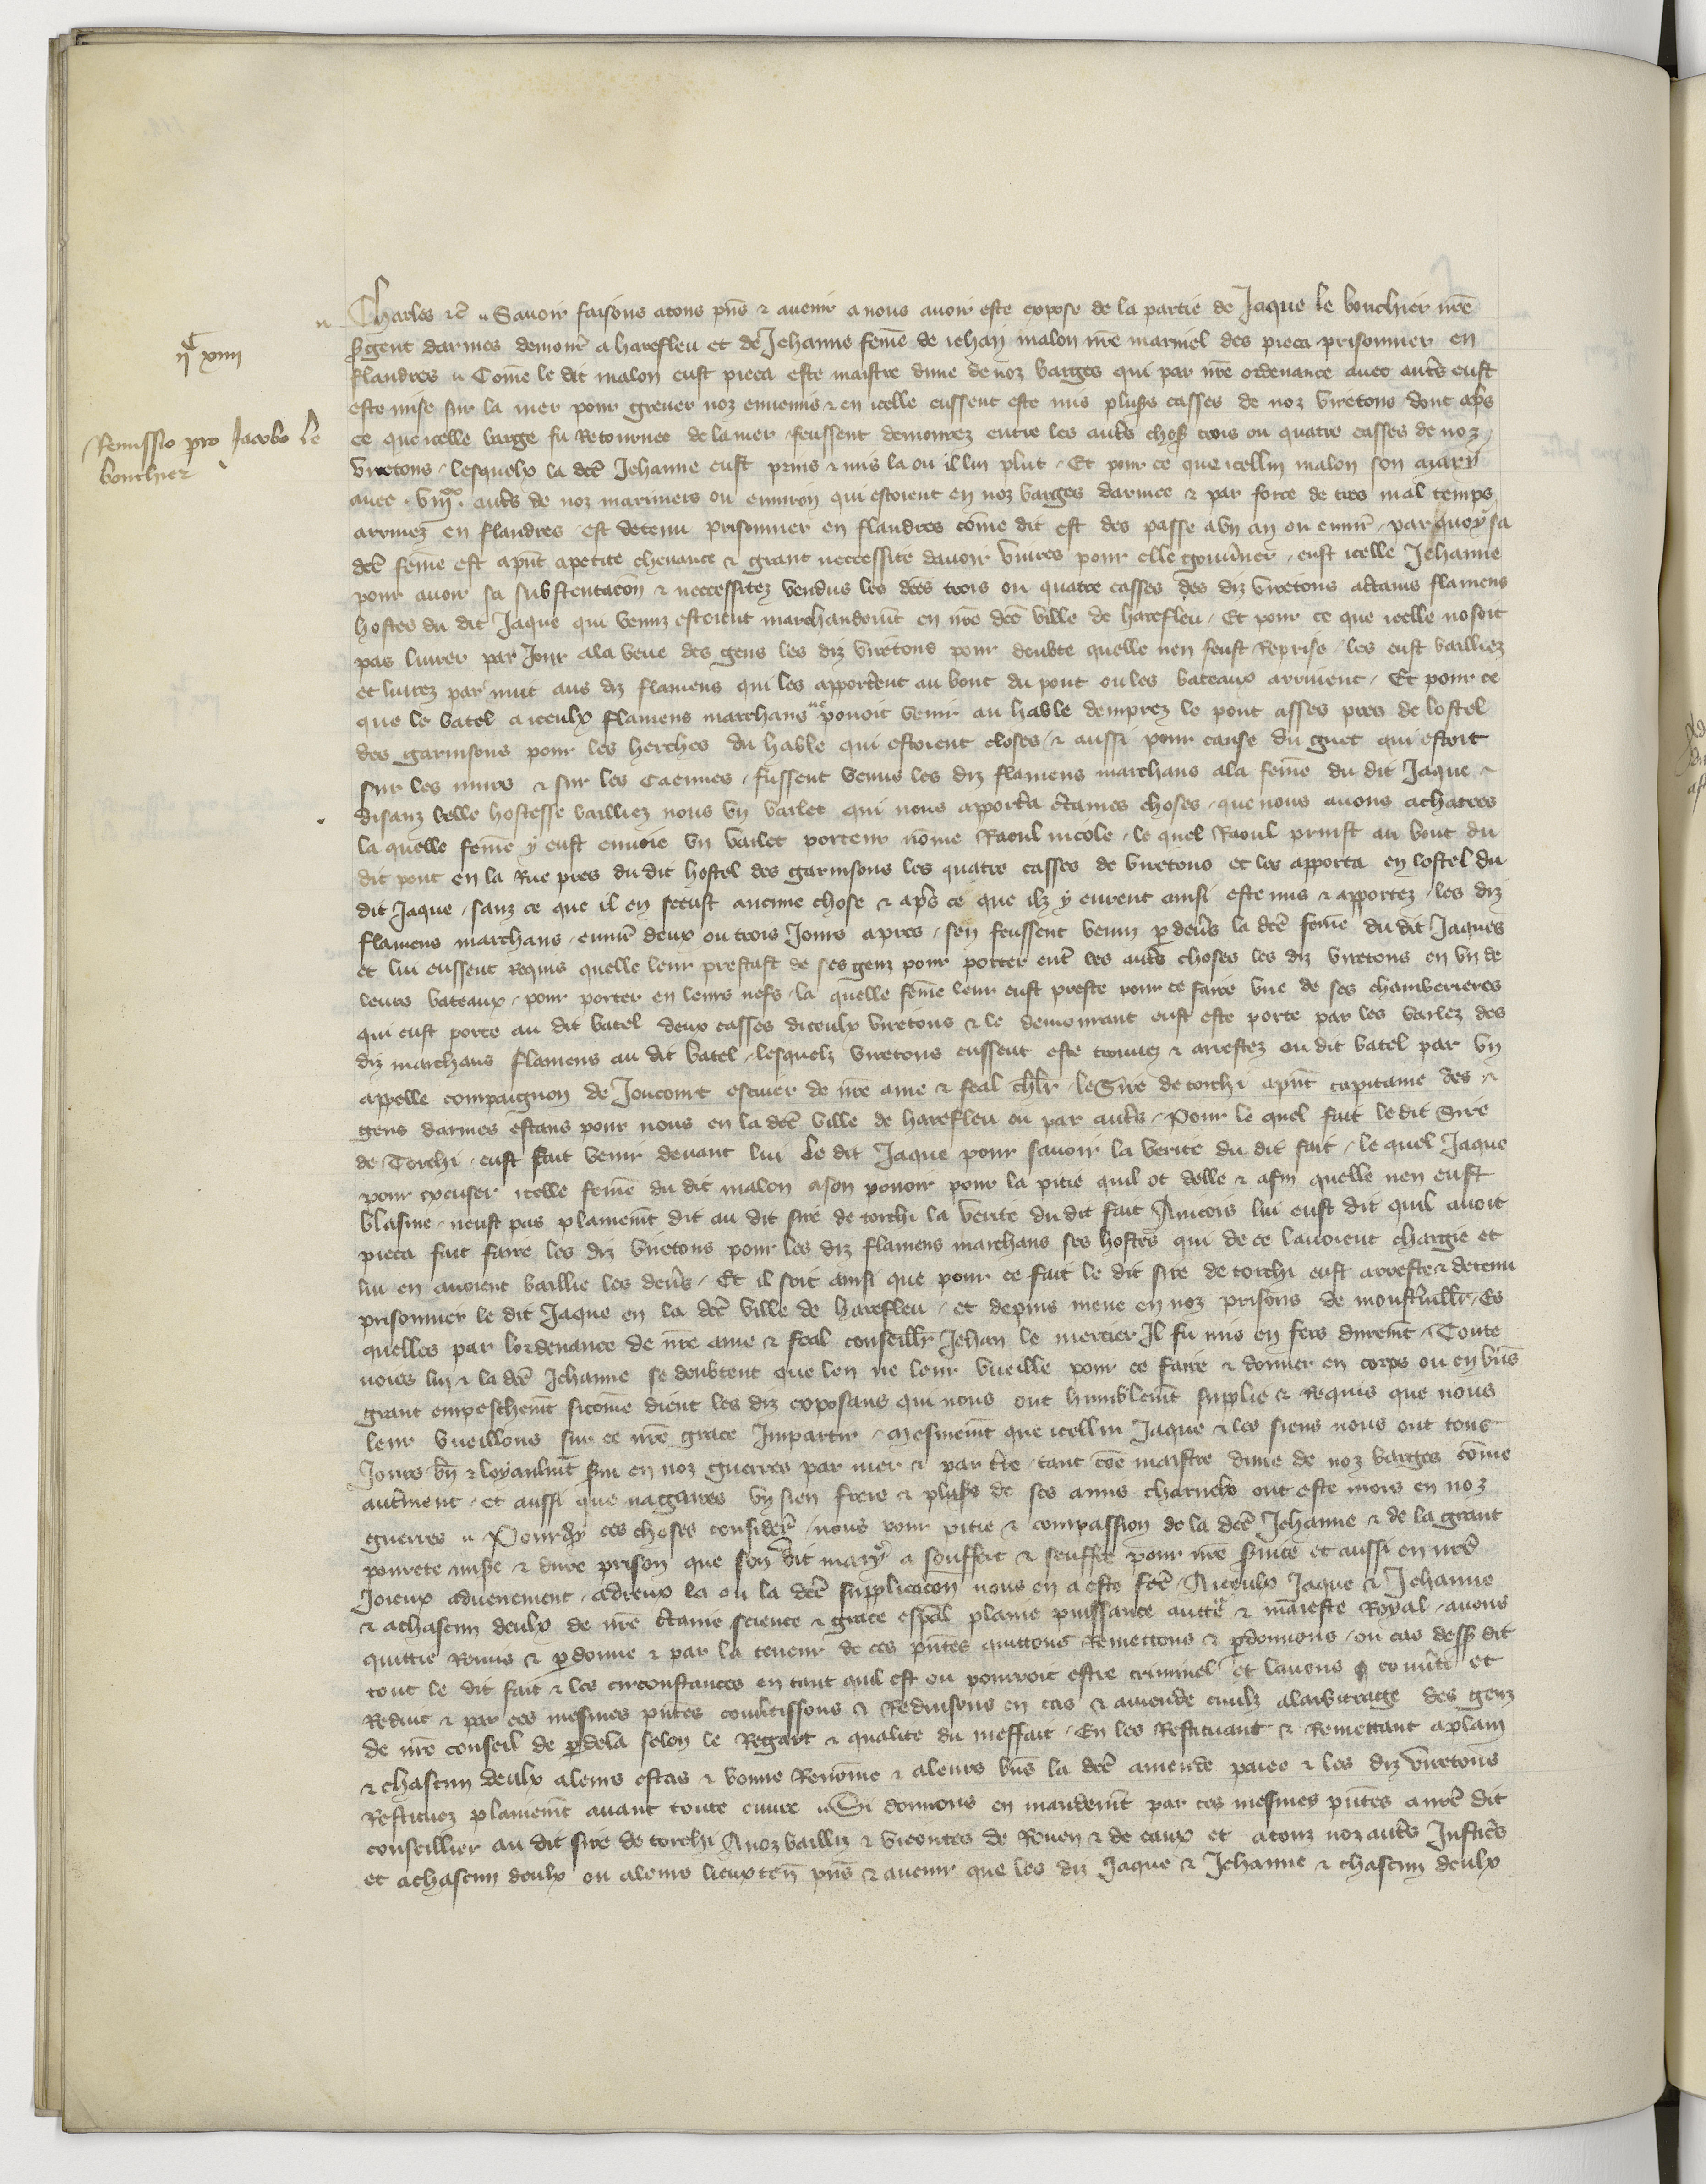 IIᶜ XIIII
Remissio pro Jacobo le
bouchier
Charles etc̃ Savoir faisons a tous pñs & avenir a nous avoir este expose de la partie de Jaque le bouchier nr̃e
s̃gent darmes demour̃ a harefleu et de Jehanne fem̃e de iehan malon nr̃e marinel des pieca prisonnier en
flandres Com̃e le dit malon eust pieca este maistre dune de noz barges qui par nr̃e ordenance avec autr̃s eust
este mise sur la mer pour grever noz ennemis & en icelle eussent este mis plus̃s casses de noz viretons dont apr̃s
ce que icelle barge fu Retournee de la mer feussent demourez entre les autr̃s chos̃ trois ou quatre casses de noz
viretons lesquelx la dc̃e Jehanne eust prins & mis la ou il lui plut Et pour ce que icellui malon son mary
avec autr̃s de noz mariniers ou environ qui estoient en noz barges darmee & par force de tres mal temps
arrivez en flandres est detenu prisonnier en flandres com̃e dit est des passe a vn an ou envir̃ par quoy sa
dc̃e fem̃e est a pñt a petite chevance & grant neccessite davoir vivres pour elle gouv̾ner eust icelle Jehanne
pour avoir sa substentacõn & neccessitez vendus les dc̃es trois ou quatre casses des diz viretons a c̾tains flamens
hostes du dit Jaque qui venuz estoient marchandem̃t en nr̃e dc̃e ville de harefleu Et pour ce que icelle nosoit
pas livrer par Jour a la veue des gens les diz viretons pour doubte quelle nen feust Reprise les eust bailliez
et livrez par nuit aus diz flamens qui les apporter̃ent au bout du pont ou les bateaux arrivent Et pour ce
que le batel a iceulx flamens marchans ne povoit venir au hable demprez le pont asses pres de lostel
des garnisons pour les herches du hable qui estoient closes & aussi pour cause du guet qui estoit
sur les murs & sur les caennes fussent venus les diz flamens marchans a la fem̃e du dit Jaque &
disanz belle hostesse bailliez nous vn varlet qui nous apporter̃a c̾taines choses que nous avons achatees
la quelle fem̃e y eust envoie vn varlet porteur nom̃e Raoul nicole le quel Raoul prinst au bout du
dit pont en la Rue pres du dit hostel des garnisons les quatre casses de viretons et les apporta en lostel du
dit Jaque sanz ce que il en sceust aucune chose & apr̃s ce que ilz y eurent ainsi este mis & apportez les diz
flamens marchans envir̃ deux ou trois Jours apres sen feussent venuz p̱ dev̾s la dc̃e fem̃e du dit Jaques
et lui eussent requis quelle leur prestast de ses genz pour porter entr̃ les autr̃s choses les diz viretons en vn de
leurs bateaux pour porter en leurs nefs la quelle fem̃e leur eust preste pour ce faire vne de ses chamberieres
qui eust porte au dit batel deux casses diceulx viretons & le demourant eust este porte par les varlez des
diz marchans flamens au dit batel lesquelz viretons eussent este trouvez & arrestez ou dit batel par vn
appelle compaignon de Joncourt escuier de nr̃e ame & feal chl̃r le Sire de torchi a pñt capitaine des &
gens darmes estans pour nous en la dc̃e ville de harefleu ou par autr̃s Pour le quel fait le dit Sire
de Torchi eust fait venir devant lui le dit Jaque pour savoir la verite du dit fait le quel Jaque
pour excuser icelle fem̃e du dit malon a son povoir pour la pitie quil ot delle & afin quelle nen eust
blasme neust pas plainem̃t dit au dit sire de torchi la verite du dit fait Aincois lui eust dit quil avoit
pieca fait faire les diz viretons pour les diz flamens marchans ses hostes qui de ce lavoient chargie et
lui en avoient baillie les den̾s Et il soit ainsi que pour ce fait le dit sire de torchi eust arreste & detenu
prisonnier le dit Jaque en la dc̃e ville de harefleu et depuis mene en noz prisons de monst̾viller̃ Es
quelles par lordenance de nr̃e ame & feal conseillr̃ Jehan le mercier Il fu mis en fers durem̃t Toute
voies lui & la dc̃e Jehanne se doubtent que len ne leur vueille pour ce faire & donner en corps ou en biñs
grant empeschem̃t sicom̃e dient les diz exposans qui nous ont humblem̃t supplie & Requis que nous
leur vueillons sur ce nr̃e grace Impartir mesmem̃t que icellui Jaque & les siens nous ont tous
Jours biñ & loyaulm̃t s̾vi en noz guerres par mer & par t̾re tant cõe maistre dune de noz barges com̃e
autrem̃ent et aussi que nagueres vn sien frere & plus̃s de ses amis charnelx ont este mors en noz
guerres Pourq̃y ces choses consider̃ nous pour pitie & compassion de la dc̃e Jehanne & de la grant
povrete mis̾e & dure prison que son dit mary a souffert & seuffre pour nr̃e s̾vice et aussi en nr̃e
Joieux advenement a dreux la ou la dc̃e supplicacõn nous en a este fc̃e A iceulx Jaque & Jehanne
& a chascun deulx de nr̃e c̾taine science & grace esp̃al plaine puissance auctte & maieste Royal avons
quittie Remis & p̱donne & par la teneur de ces pñtes quittons Remettons & p̱donnons ou cas dess̃ dit
tout le dit fait & les circonstances en tant quil est ou pourroit estre criminel et lavons co mũe et
Reduit & par ces mesmes pñtes com̃utissons & Reduisons en cas & amende civilz a larbitrage des genz
de nr̃e conseil de p̱ dela selon le Regart & qualite du meffait En les Restituant & Remettant a plain
& chascun deulx a leurs estas & bonne Renom̃e & a leurs biñs la dc̃e amende paiee & les diz viretons
Restituez plainem̃t avant toute euvre Si donnons en mandem̃t par ces mesmes pñtes a nr̃e dit
conseillier au dit sire de torchi A noz bailliz & vicontes de Rouen & de caux et a touz noz autr̃s Justic̃s
et a chascun deulx ou a leurs lieuxteñ pñs & avenir que les diz Jaque & Jehanne & chascun deulx